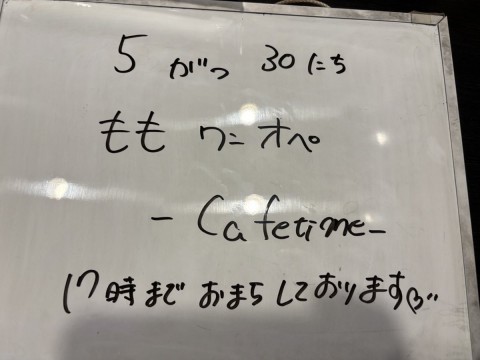 5 がつ 30にち
もも ワンオペ
- Cafetime -
17時まで おまちしております